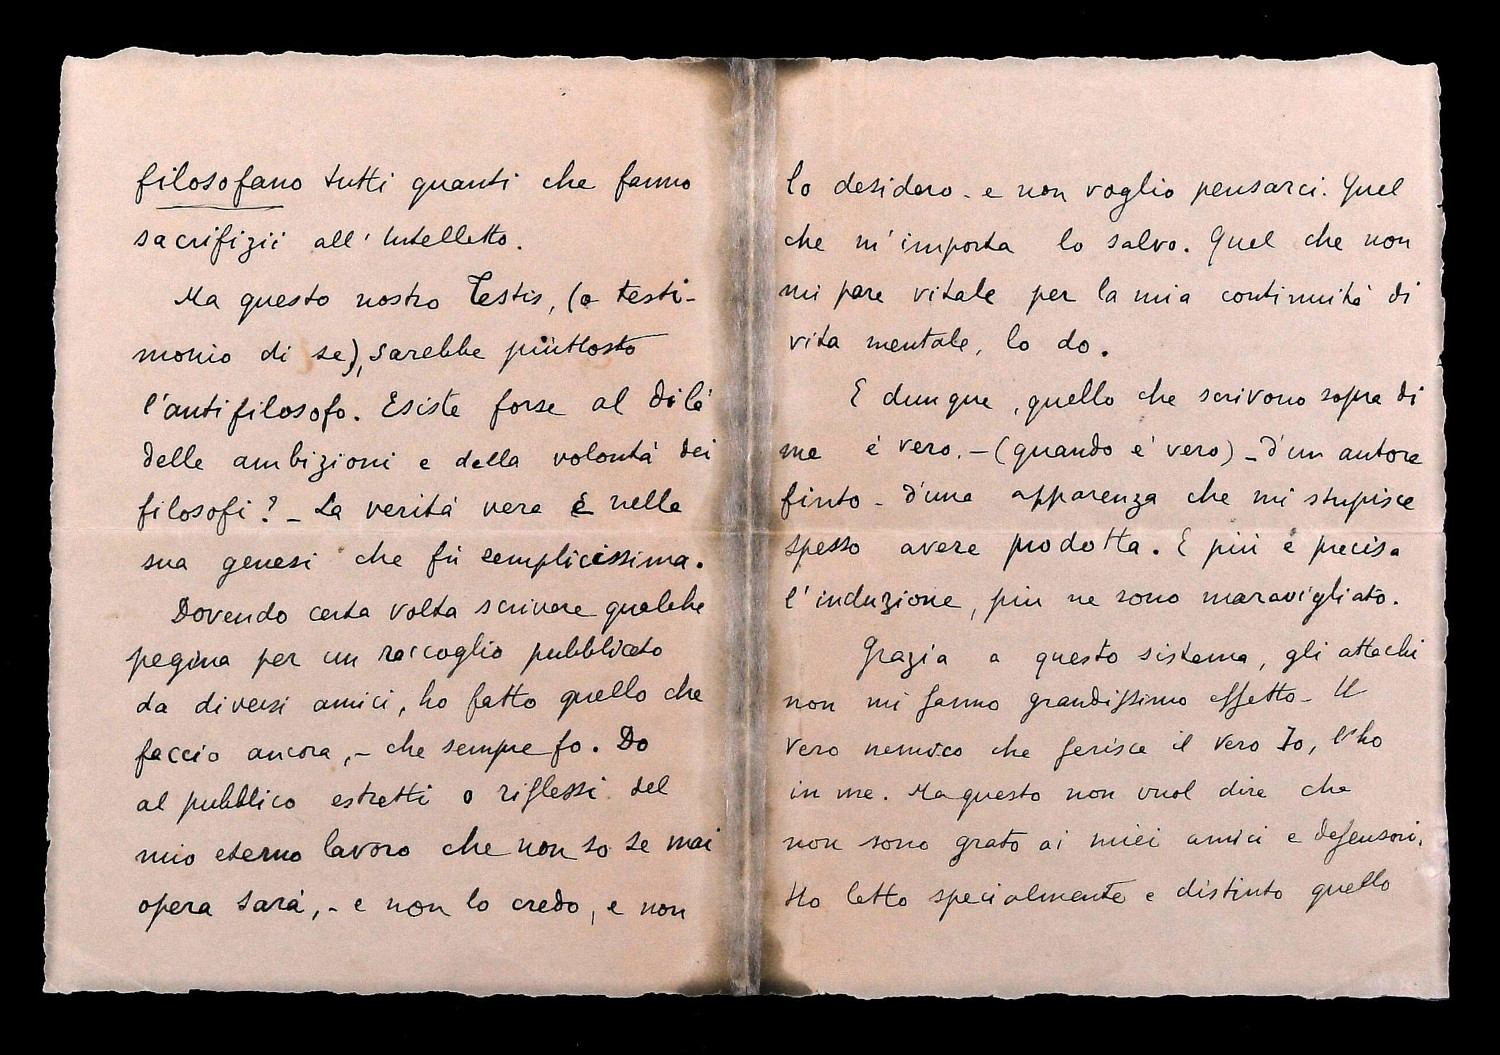 filosofano tutti quanti che fanno
sacrifizii all'Intelletto.
Ma questo nostro Testis, (o testi-
monio di se), sarebbe piuttosto
l'antifilosofo. Esiste forse al di là
delle ambizioni e della volontà dei
filosofi? – La verità vera è nella
sua genesi che fù semplicissima.
Dovendo certa volta scrivere qualche
pegina per un raccoglio pubblicato
da diversi amici, ho fatto quello che
faccio ancora, – che sempre fo. Do
al pubblico estretti o riflessi del
mio eterno lavoro che non so se mai
opera sarà, – e non lo credo, e non
lo desidero – e non voglio pensarci. Quel
che m'importa lo salvo. Quel che non
mi pare vitale per la mia continuità di
vita mentale, lo do.
E dunque, quello che scrivono sopra di
me è vero. – (quando è vero) – d'un autore
finto – d'una apparenza che mi stupisce
spesso avere prodotta. E più è precisa
l'induzione, più ne sono maravigliato.
Grazia a questo sistema, gli attachi
non mi fanno grandissimo effetto – Il
vero nemico che ferisce il vero Io, l'ho
in me. Ma questo non vuol dire che
non sono grato ai miei amici e defensori.
Ho letto specialmente e distinto quello